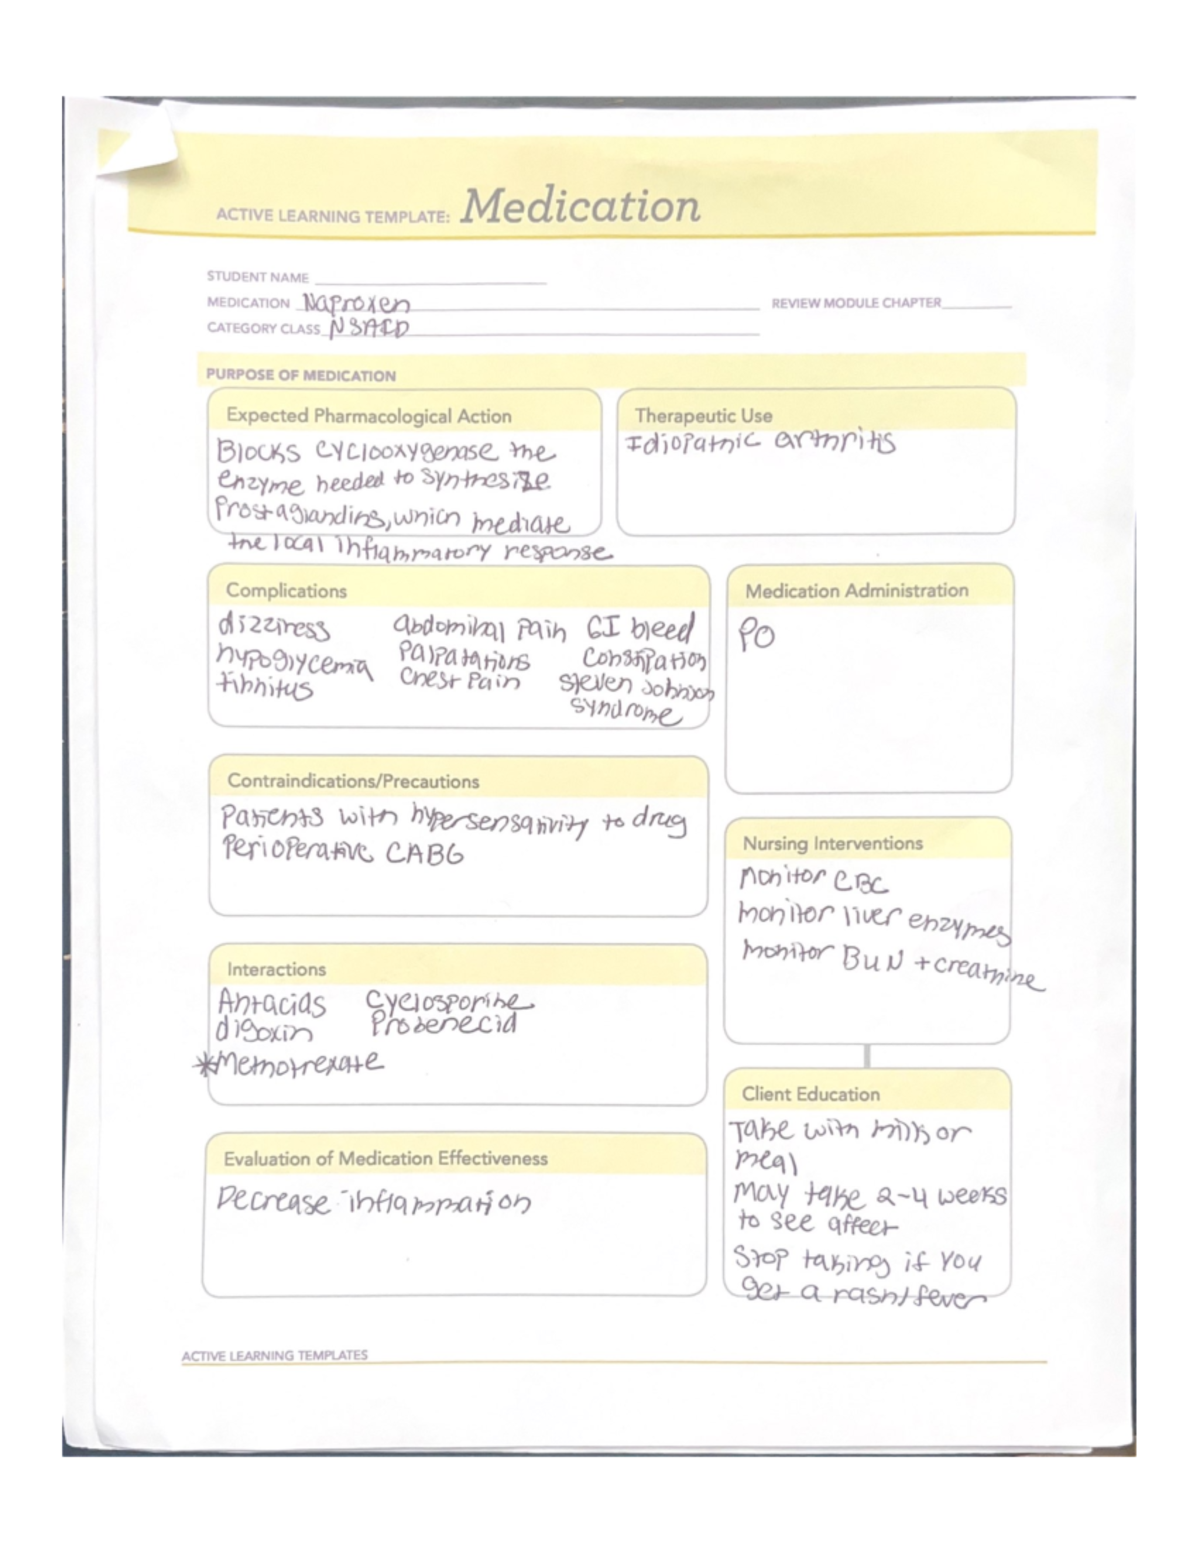 ACTIVE LEARNING TEMPLATE: Medication
STUDENT NAME
MEDICATION Naproxen
REVIEW MODULE CHAPTER
CATEGORY CLASS NSAID
PURPOSE OF MEDICATION
Expected Pharmacological Action
Blocks cyclooxygenase the
enzyme needed to synthesize
Prostaglandins, which mediate
the local inflammatory response
Therapeutic Use
Idiopathic arthritis
Complications
dizziness abdominal pain GI bleed
hypoglycemia palpatations constipation
tinnitus chest pain steven johnson
syndrome
Medication Administration
PO
Contraindications/Precautions
Patients with hypersensativity to drug
Perioperative CABG
Nursing Interventions
Monitor CBC
monitor liver enzymes
monitor BUN + creatnine
Interactions
Antacids Cyclosporine
digoxin Probenecid
*Methotrexate
Client Education
Take with milk or
meal
May take 2-4 weeks
to see affect
Stop taking if you
get a rash/fever
Evaluation of Medication Effectiveness
Decrease inflammation
ACTIVE LEARNING TEMPLATES